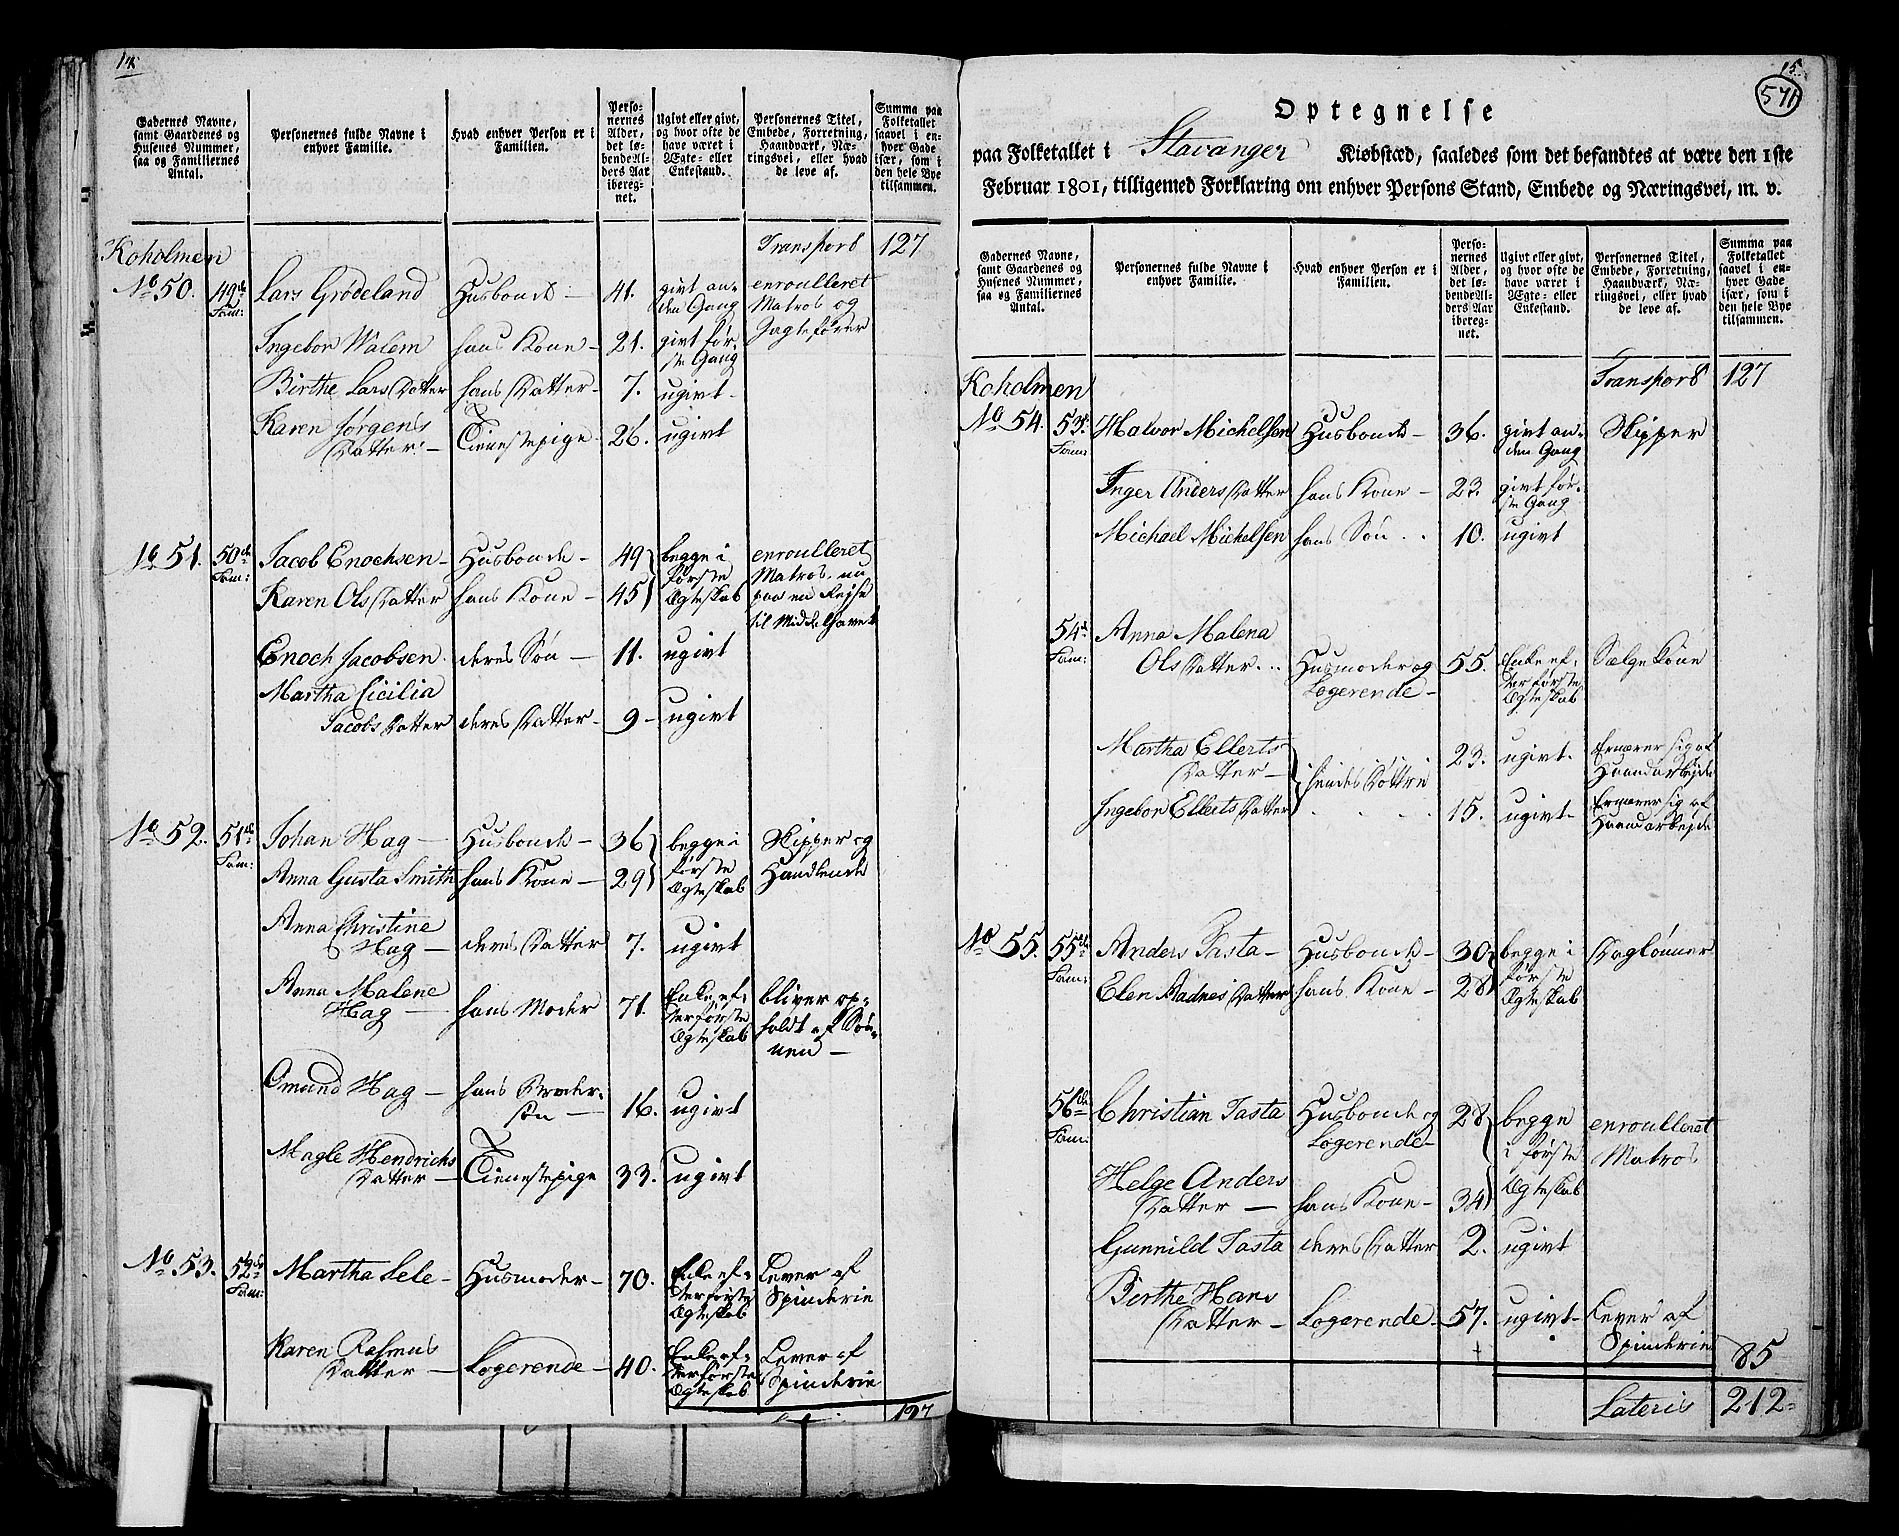 14.
Gadernes Navne, samt Gaardenes og Husenes Nummer, saa og Familiernes Antal.
Personernes fulde Navne i enhver Familie.
Hvad enhver Person er i Familien.
Personernes Alder, det løbende Alders Aar iberegnet.
Ugivt eller givt, og hvor ofte de have været i Ægte- eller Enkestand.
Personernes Titel, Embede, Forretning, Haandværk, Næringsvei, eller hvad de leve af.
Summa paa Folketallet saavel i enhver Gade især, som i den hele Bye tilsammen.
Koholmen Transport 127
No 50. 49de Fam: Lars Grødeland Husbonde — 41. givt anden Gang enroulleret Matros og Jagtefører
Ingebor Walem hans Kone — 21. givt første Gang
Birthe Lars Datter hans Datter — 7. ugivt
Karen Jørgens Datter — Tienestepige 26. ugivt
No 51. 50de Fam: Jacob Enochsen — Husbonde — 49 begge i første Ægteskab enroulleret Matros, nu paa en Rejse til Middelhavet
Karen Ols Datter hans Kone — 45
Enoch Jacobsen deres Søn — 11. ugivt
Martha Cicilia Jacobs Datter deres Datter — 9 — ugivt
No 52. 51de Fam: Johan Hag — Husbonde — 36 begge i første Ægteskab Skipper og Handlende
Anna Gusta Smith hans Kone — 29
Anna Christine Hag — deres Datter 7. ugivt
Anna Malene Hag — hans Moder 71. Enke efter første Ægteskab bliver opholdt af Sønnen —
Omund Hag — hans Brodersøn — 16. ugivt
Magle Hendrichs Datter — Tienestepige 33. ugivt
No 53. 52de Fam: Martha Lele — Husmoder — 70. Enke efter første Ægteskab Lever af Spinderie
Karen Rasmus Datter — Logerende — 40. Enke efter første Ægteskab Lever af Spinderie
127
15.
571
Optegnelse
paa Folketallet i Stavanger Kiøbstæd, saaledes som det befandtes at være den 1ste
Februar 1801, tilligemed Forklaring om enhver Persons Stand, Embede og Næringsvei, m. v.
Gadernes Navne, samt Gaardenes og Husenes Nummer, saa og Familiernes Antal.
Personernes fulde Navne i enhver Familie.
Hvad enhver Person er i Familien.
Personernes Alder, det løbende Alders Aar iberegnet.
Ugivt eller givt, og hvor ofte de have været i Ægte- eller Enkestand.
Personernes Titel, Embede, Forretning, Haandværk, Næringsvei, eller hvad de leve af.
Summa paa Folketallet saavel i enhver Gade især, som i den hele Bye tilsammen.
Koholmen Transport 127
No 54. 53de Fam: Halvor Michelsen Husbonde — 36. givt anden Gang Skipper
Inger Anders Datter hans Kone — 23. givt første Gang
Michael Michelsen hans Søn . . 10. ugivt
54de Fam: Anna Malena Ols Datter . . . Husmoder og Logerende — 55. Enke efter første Ægteskab Sælgekone
Martha Ellerts Datter — hendes Døttre 23. ugivt. Ernærer sig af Haandarbejde
Ingebor Ellerts Datter . . . . 15. ugivt — Ernærer sig af Haandarbejde
No 55. 55de Fam: Anders Tasta — Husbonde — 30 begge i første Ægteskab Daglønner
Elen Aadnes Datter hans Kone — 28
56de Fam: Christian Tasta Husbonde og Logerende — 28 begge i første Ægteskab enroulleret Matros
Helge Anders Datter — hans Kone — 34
Gunnild Tasta deres Datter 2. ugivt
Birthe Hans Datter — Logerende — 57. ugivt — Lever af Spinderie
85
Lateris 212